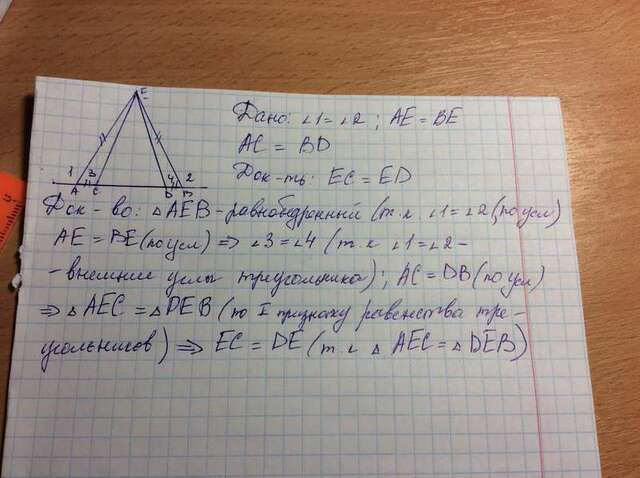 E
1 3 4 2
A C B D
Дано: ∠1=∠2; AE=BE
AC = BD
Док-ть: EC=ED
Док-во: △AEB-равнобедренный (т.к ∠1=∠2(по усл)
AE=BE(по усл) ⇒ ∠3=∠4 (т.к ∠1=∠2-
-внешние углы треугольника); AC=DB(по усл)
⇒ △AEC=△DEB(по I признаку равенства тре-
угольников) ⇒ EC=DE(т.к △AEC=△DEB)